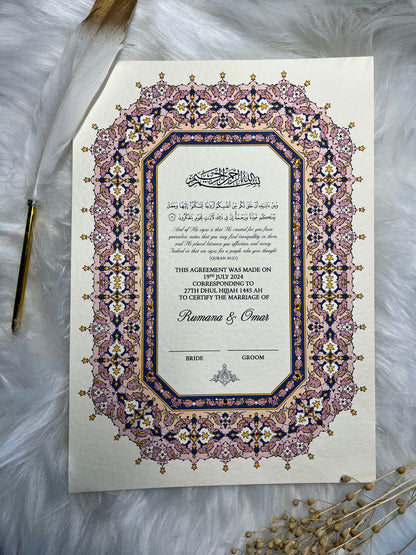 بسم الله الرحمن الرحيم
وَمِنْ ءَايَٰتِهِۦٓ أَنْ خَلَقَ لَكُم مِّنْ أَنفُسِكُمْ أَزْوَٰجًا لِّتَسْكُنُوٓا۟ إِلَيْهَا وَجَعَلَ
بَيْنَكُم مَّوَدَّةً وَرَحْمَةً إِنَّ فِى ذَٰلِكَ لَءَايَٰتٍ لِّقَوْمٍ يَتَفَكَّرُونَ
And of His signs is that He created for you from
yourselves mates that you may find tranquillity in them,
and He placed between you affection and mercy.
Indeed in that are signs for a people who give thought
[QURAN 30:21]
THIS AGREEMENT WAS MADE ON
19TH JULY 2024
CORRESPONDING TO
27TH DHUL HIJJAH 1445 AH
TO CERTIFY THE MARRIAGE OF
Rumana & Omar
BRIDE GROOM